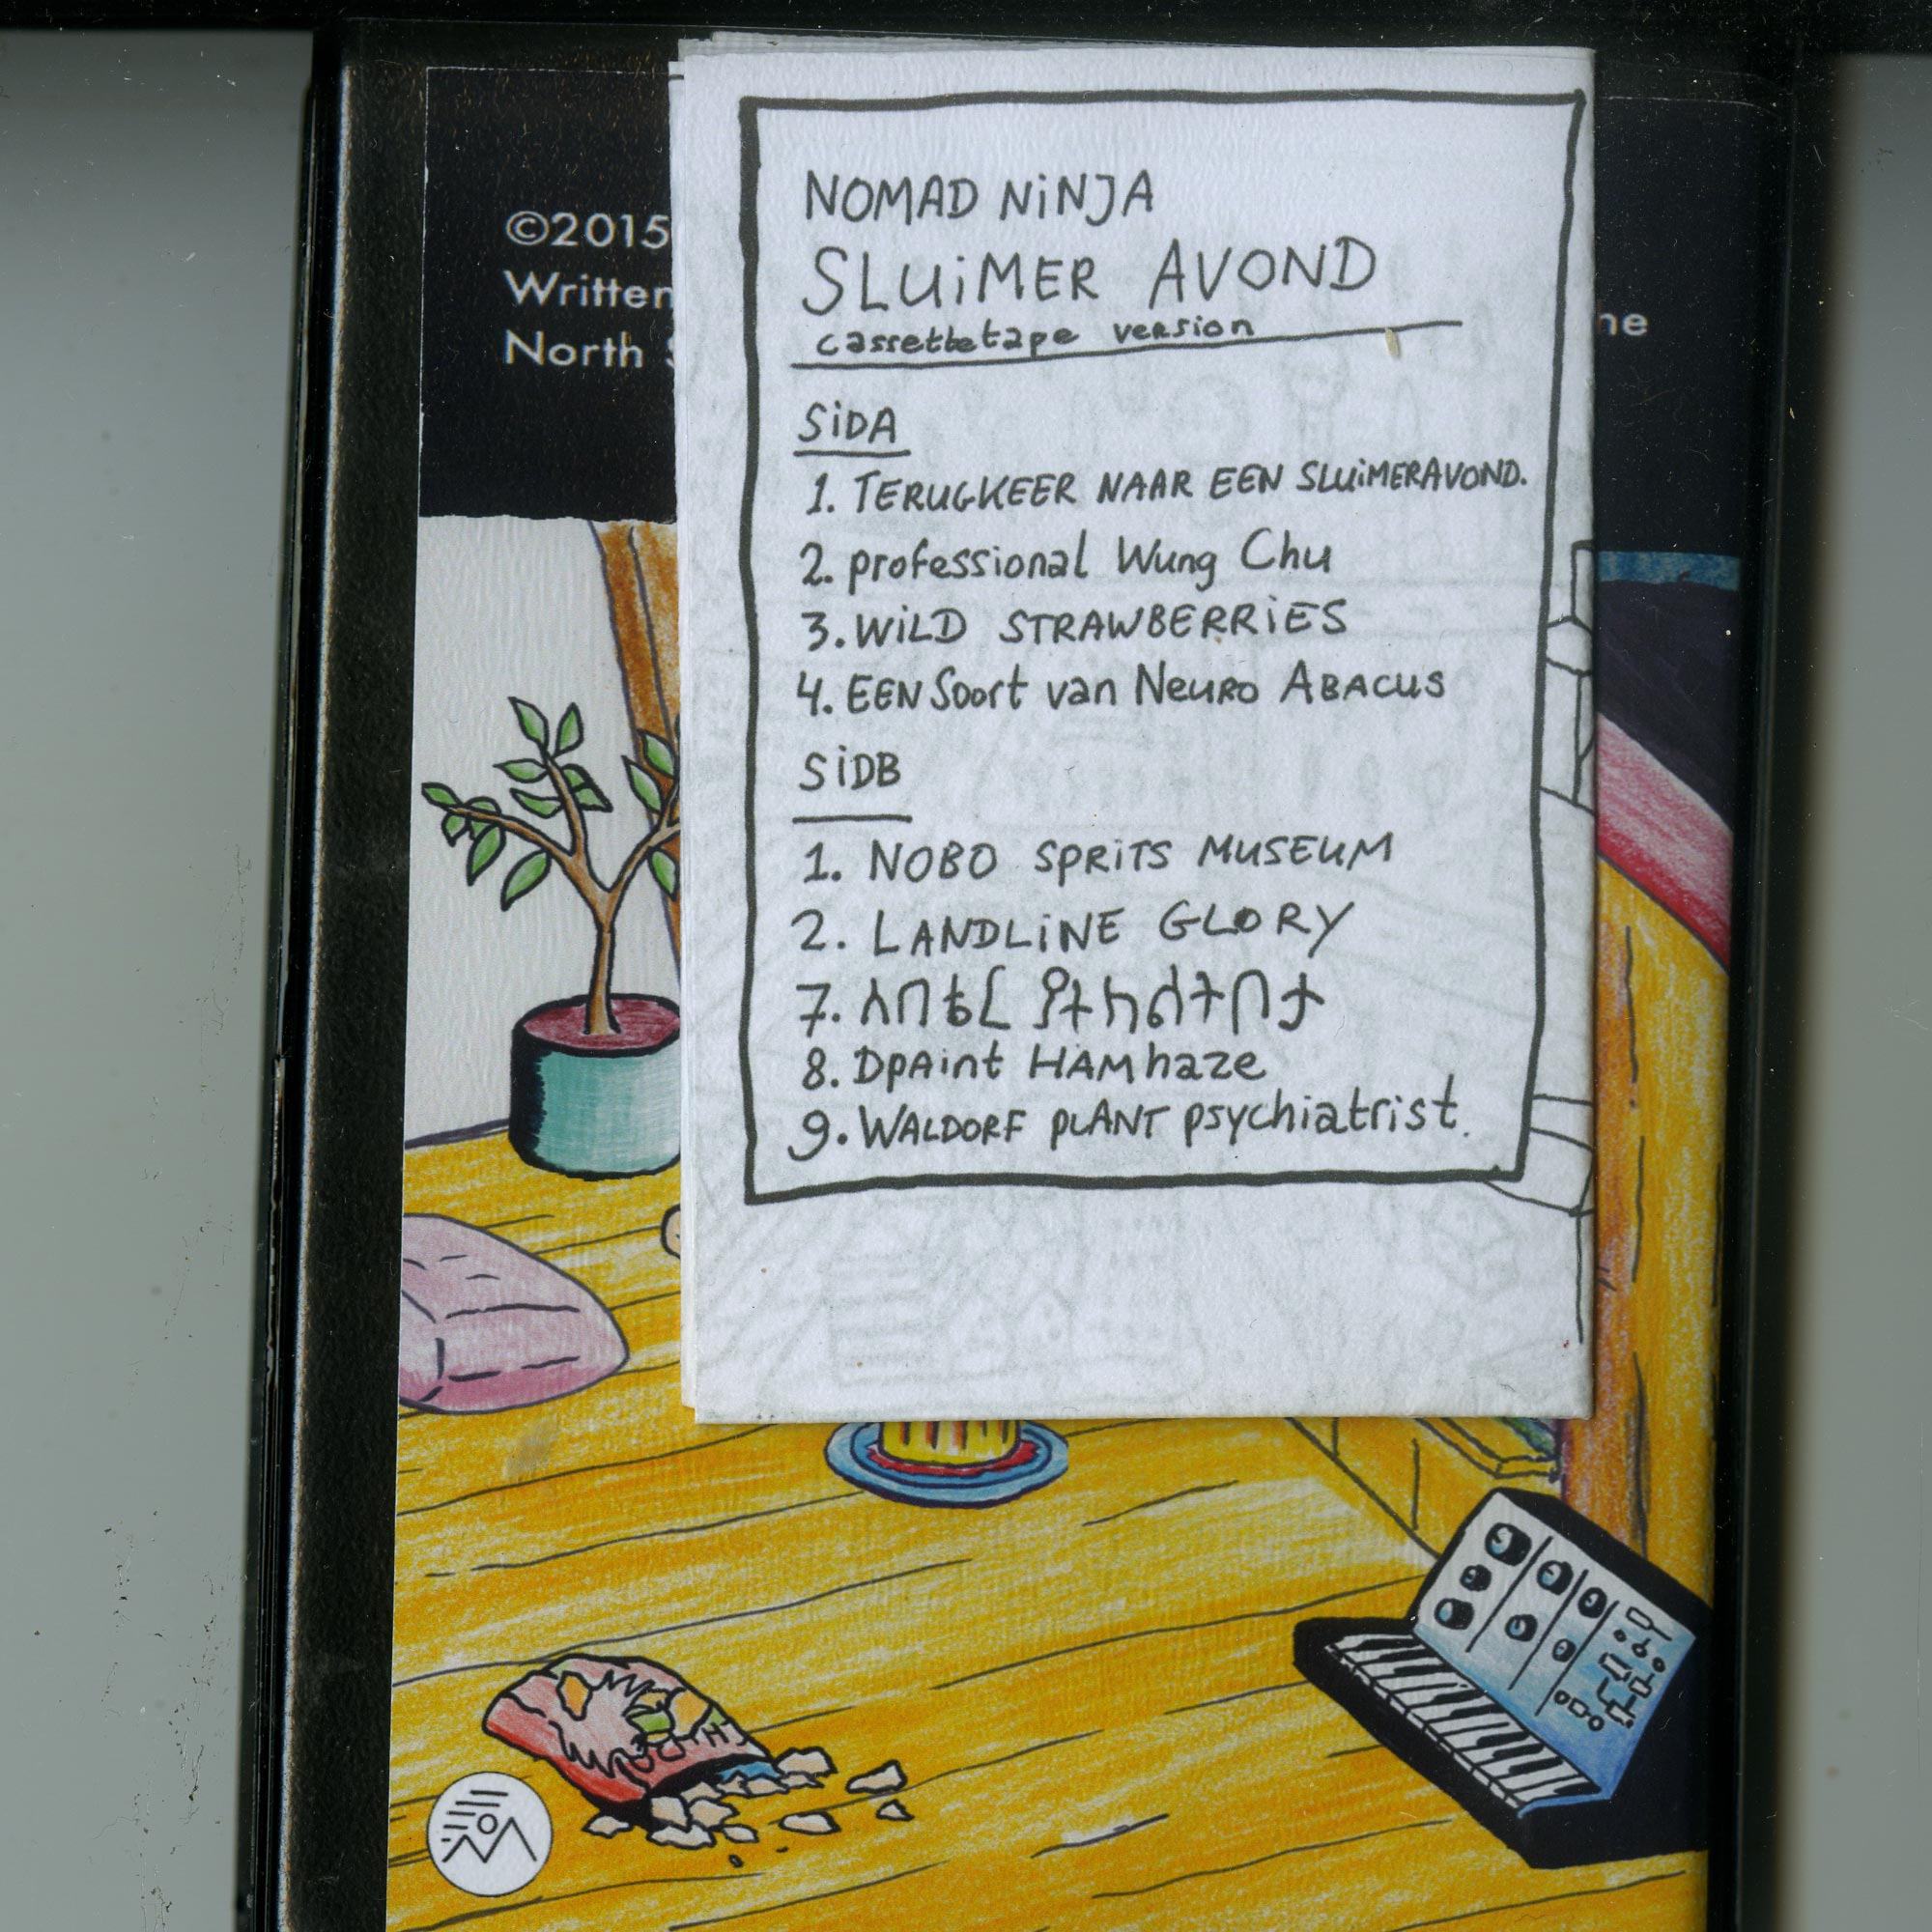 ©2015
Written
North
ne
NOMAD NiNJA
SLUiMER AVOND
cassettetape version
SiDA
1. TERUGKEER NAAR EEN SLUiMERAVOND.
2. professional Wung Chu
3. WiLD STRAWBERRiES
4. EEN Soort van Neuro ABACUS
SiDB
1. NOBO SPRiTS MUSEUM
2. LANDLiNE GLORY
7.
8. DpAint HAMhaze
9. WALDORF PLANT psychiatrist.